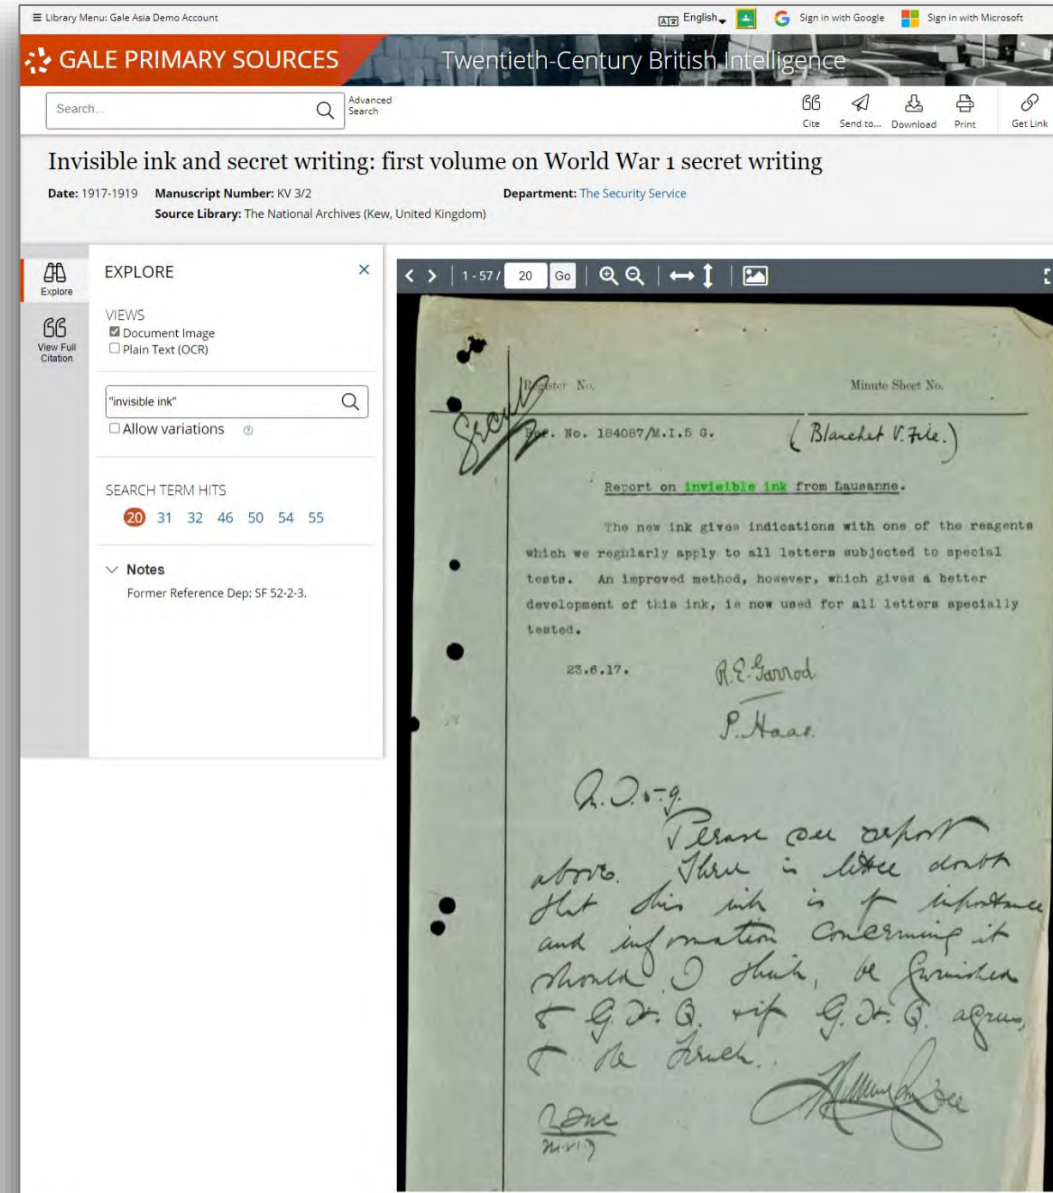 Library Menu: Gale Asia Demo Account
English
Sign in with Google
Sign in with Microsoft
GALE PRIMARY SOURCES
Twentieth-Century British Intelligence
Search...
Advanced Search
Cite
Send to...
Download
Print
Get Link
Invisible ink and secret writing: first volume on World War 1 secret writing
Date: 1917-1919 Manuscript Number: KV 3/2 Department: The Security Service
Source Library: The National Archives (Kew, United Kingdom)
Explore
View Full Citation
EXPLORE
VIEWS
Document Image
Plain Text (OCR)
"invisible ink"
Allow variations
SEARCH TERM HITS
20 31 32 46 50 54 55
Notes
Former Reference Dep: SF 52-2-3.
1 - 57 / 20 Go
Register No. Minute Sheet No.
Secret
Ref. No. 184087/M.I.5 G. (Blanchet V. File.)
Report on invisible ink from Lausanne.
The new ink gives indications with one of the reagents
which we regularly apply to all letters subjected to special
tests. An improved method, however, which gives a better
development of this ink, is now used for all letters specially
tested.
23.6.17. R.E. Garrod
P. Haas.
Please see report
above. There is little doubt
that this ink is of importance
and information concerning it
should I think, be furnished
to G.H.Q. & if G.H.Q. agrees,
to the French.